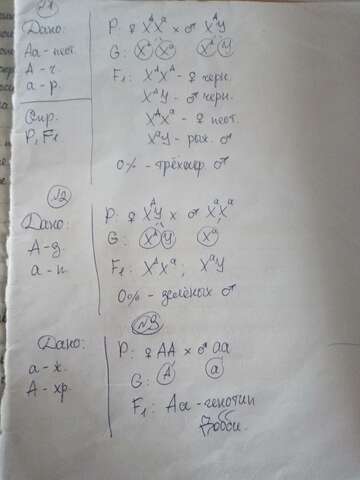 №1
Дано:
Aa - пест.
A - ч.
a - р.
Опр.
P, F₁
P: ♀ XᴬXᵃ × ♂ XᴬY
G: Xᴬ Xᵃ Xᴬ Y
F₁: XᴬXᴬ - ♀ черн.
XᴬY - ♂ черн.
XᴬXᵃ - ♀ пест.
XᵃY - рыж. ♂
0% - трёхшер ♂
№2
Дано:
A - д.
a - н.
P: ♀ XᴬY × ♂ XᵃXᵃ
G: Xᴬ Y Xᵃ
F₁: XᴬXᵃ; XᵃY
0% - зелёных ♂
№3
Дано:
a - к.
A - хр.
P: ♀ AA × ♂ aa
G: A a
F₁: Aa - генотип
Бобби.